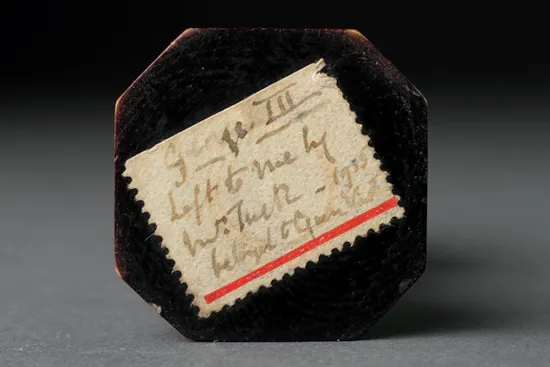 George III
Left to me by
Mrs. Tuck – 1915
belonged to Queen